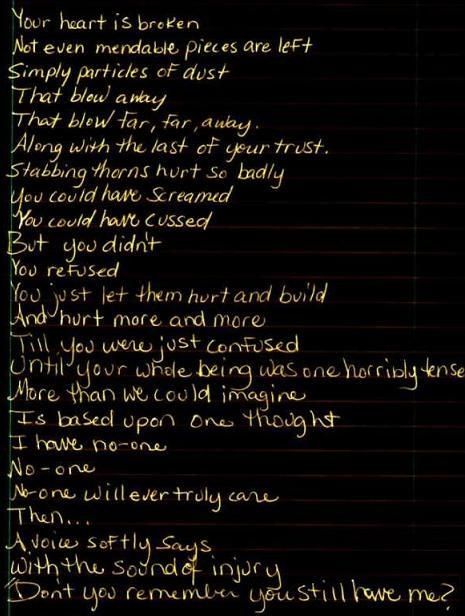 Your heart is broken
Not even mendable pieces are left
Simply particles of dust
That blow away
That blow far, far, away.
Along with the last of your trust.
Stabbing thorns hurt so badly
You could have screamed
You could have cussed
But you didn't
You refused
You just let them hurt and build
And hurt more and more
Till you were just confused
Until your whole being was one horribly tense
More than we could imagine
Is based upon one thought
I have no-one
No-one
No-one will ever truly care
Then...
A voice softly says
With the sound of injury
"Don't you remember you still have me?